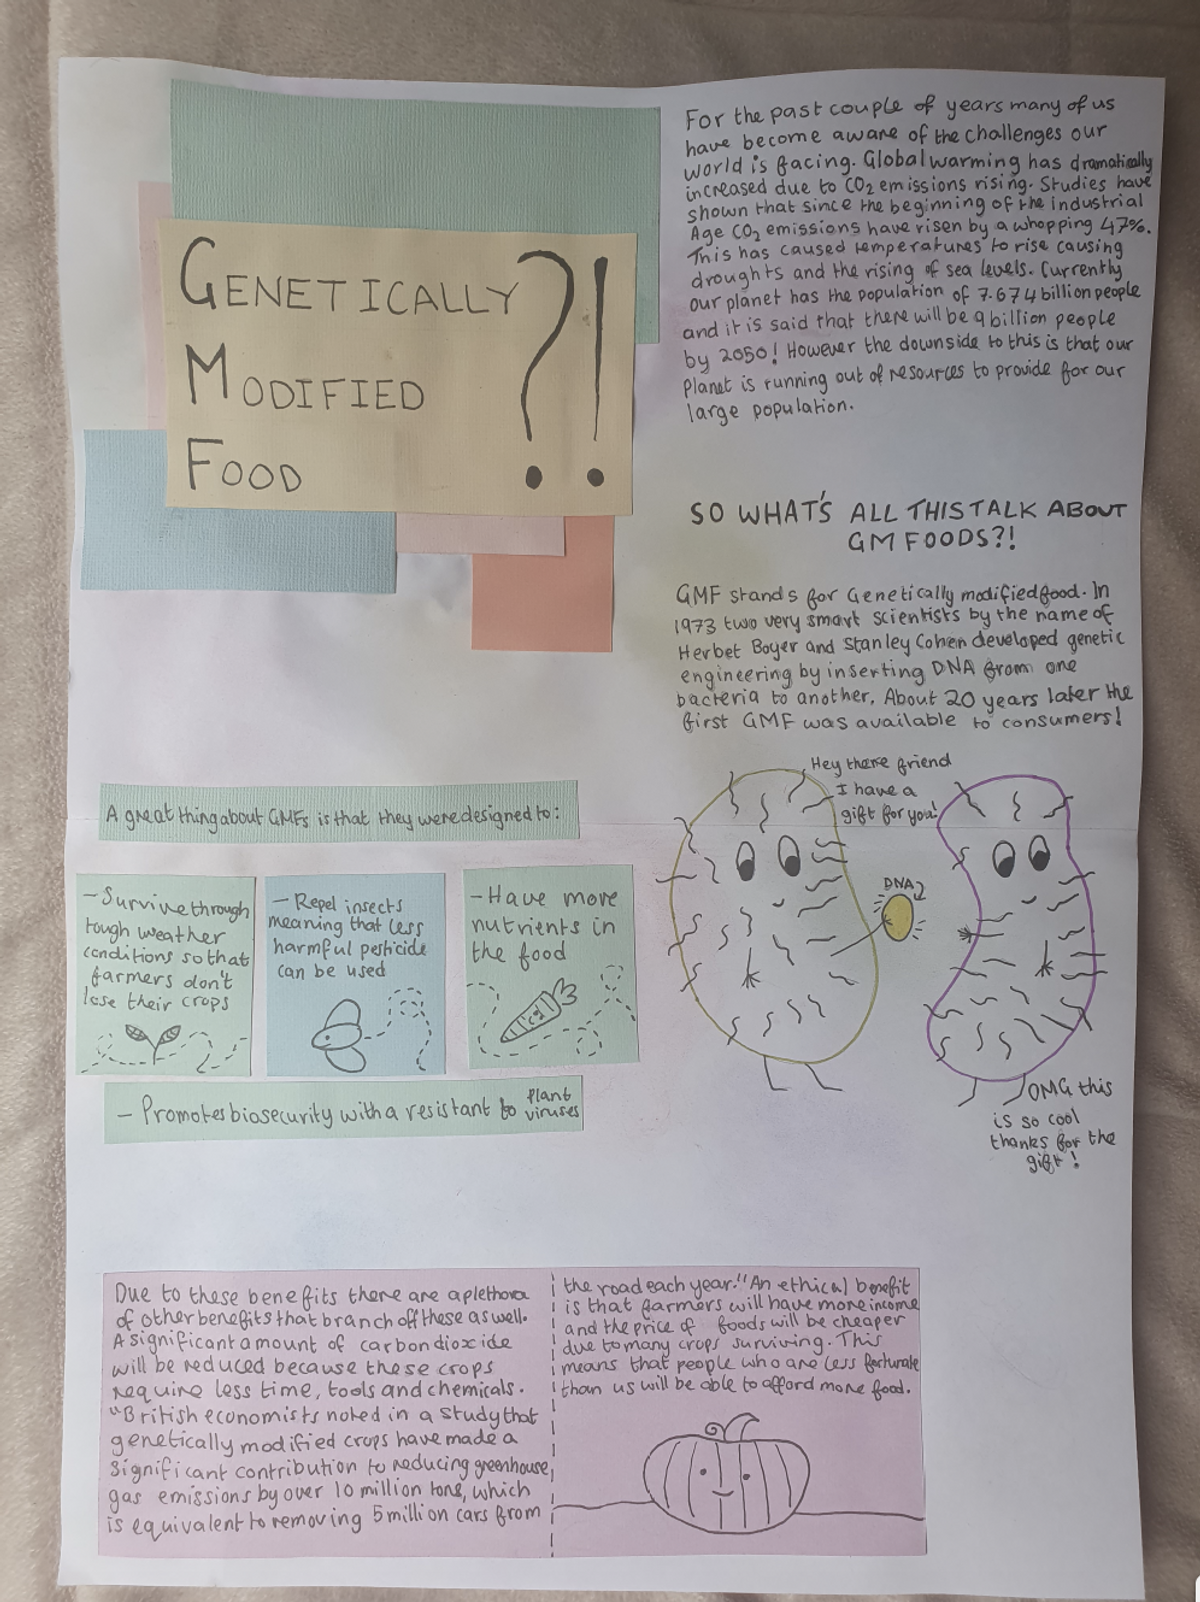 GENETICALLY ?!
MODIFIED
FOOD
For the past couple of years many of us
have become aware of the challenges our
world is facing. Global warming has dramatically
increased due to CO2 emissions rising. Studies have
shown that since the beginning of the industrial
Age CO2 emissions have risen by a whopping 47%.
This has caused temperatures to rise causing
droughts and the rising of sea levels. Currently
our planet has the population of 7.674 billion people
and it is said that there will be 9 billion people
by 2050! However the downside to this is that our
Planet is running out of resources to provide for our
large population.
SO WHAT'S ALL THIS TALK ABOUT
GM FOODS?!
GMF stands for Genetically modified food. In
1973 two very smart scientists by the name of
Herbet Boyer and Stanley Cohen developed genetic
engineering by inserting DNA from one
bacteria to another. About 20 years later the
first GMF was available to consumers!
Hey there friend
I have a
gift for you!
DNA
OMG this
is so cool
thanks for the
gift!
A great thing about GMFs is that they were designed to:
- Survive through
tough weather
conditions so that
farmers don't
lose their crops
- Repel insects
meaning that less
harmful pesticide
can be used
- Have more
nutrients in
the food
- Promotes biosecurity with a resistant to plant
viruses
Due to these benefits there are a plethora
of other benefits that branch off these as well.
A significant amount of carbon dioxide
will be reduced because these crops
require less time, tools and chemicals.
"British economists noted in a study that
genetically modified crops have made a
significant contribution to reducing greenhouse
gas emissions by over 10 million tons, which
is equivalent to removing 5 million cars from
the road each year." An ethical benefit
is that farmers will have more income
and the price of foods will be cheaper
due to many crops surviving. This
means that people who are less fortunate
than us will be able to afford more food.